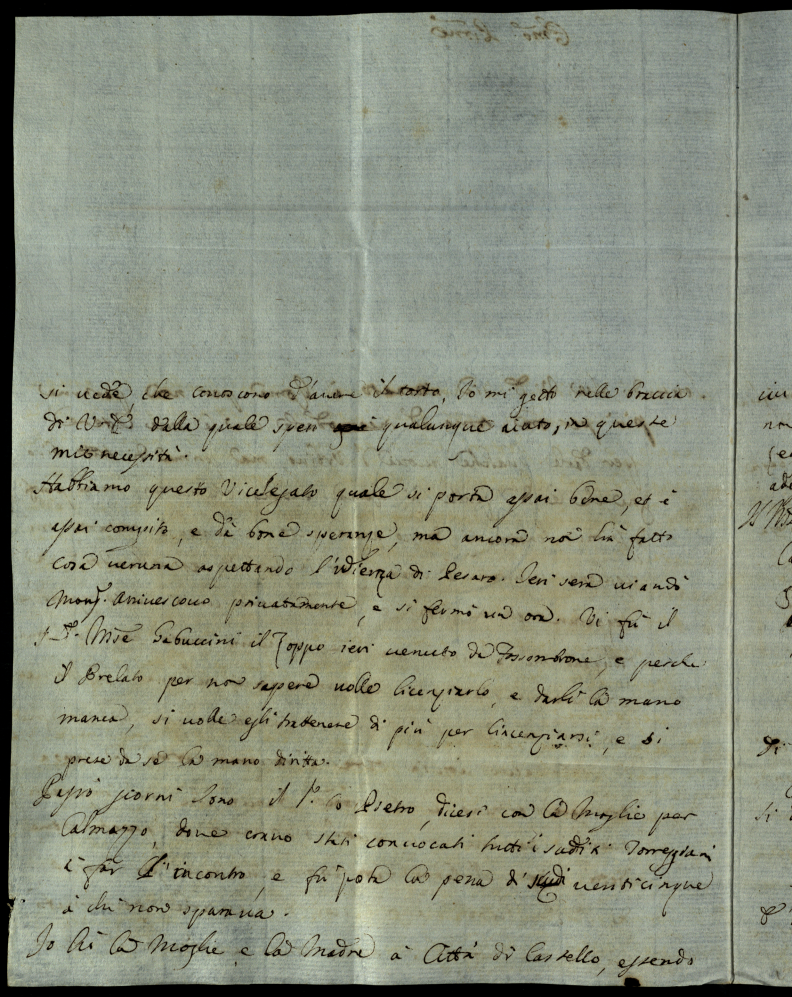 si vede, che conoscono d'avere il torto, Io mi getto nelle braccia
di V. E. dalla quale spero qualunque aiuto, in queste
mie necessità.
Habbiamo questo Vicelegato quale si porta assai bene, et è
assai compito, e dà bone speranze, ma ancora non hà fatto
cosa veruna aspettando l'udienza di Pesaro. Ieri sera viandò
Mons. Arcivescovo privatamente, e si fermò un ora. Vi fù il
Sr. Mse Gabuccini il Zoppo ieri venuto da Fossombrone, e perche
il Prelato per non sapere volle licenziarlo, e darli la mano
manca, si volle egli trattenere di più per licenziarsi, e si
prese da sè la mano dirita.
Passò giorni sono il Sr. Co Pietro, dicesi con la Moglie per
Calmazzo, dove erano stati convocati tutti i sudditi Torreggiani
à far l'incontro, e fù posta la pena di scudi venticinque
à chi non sparava.
Io hò la Moglie, e la Madre à Città di Castello, essendo